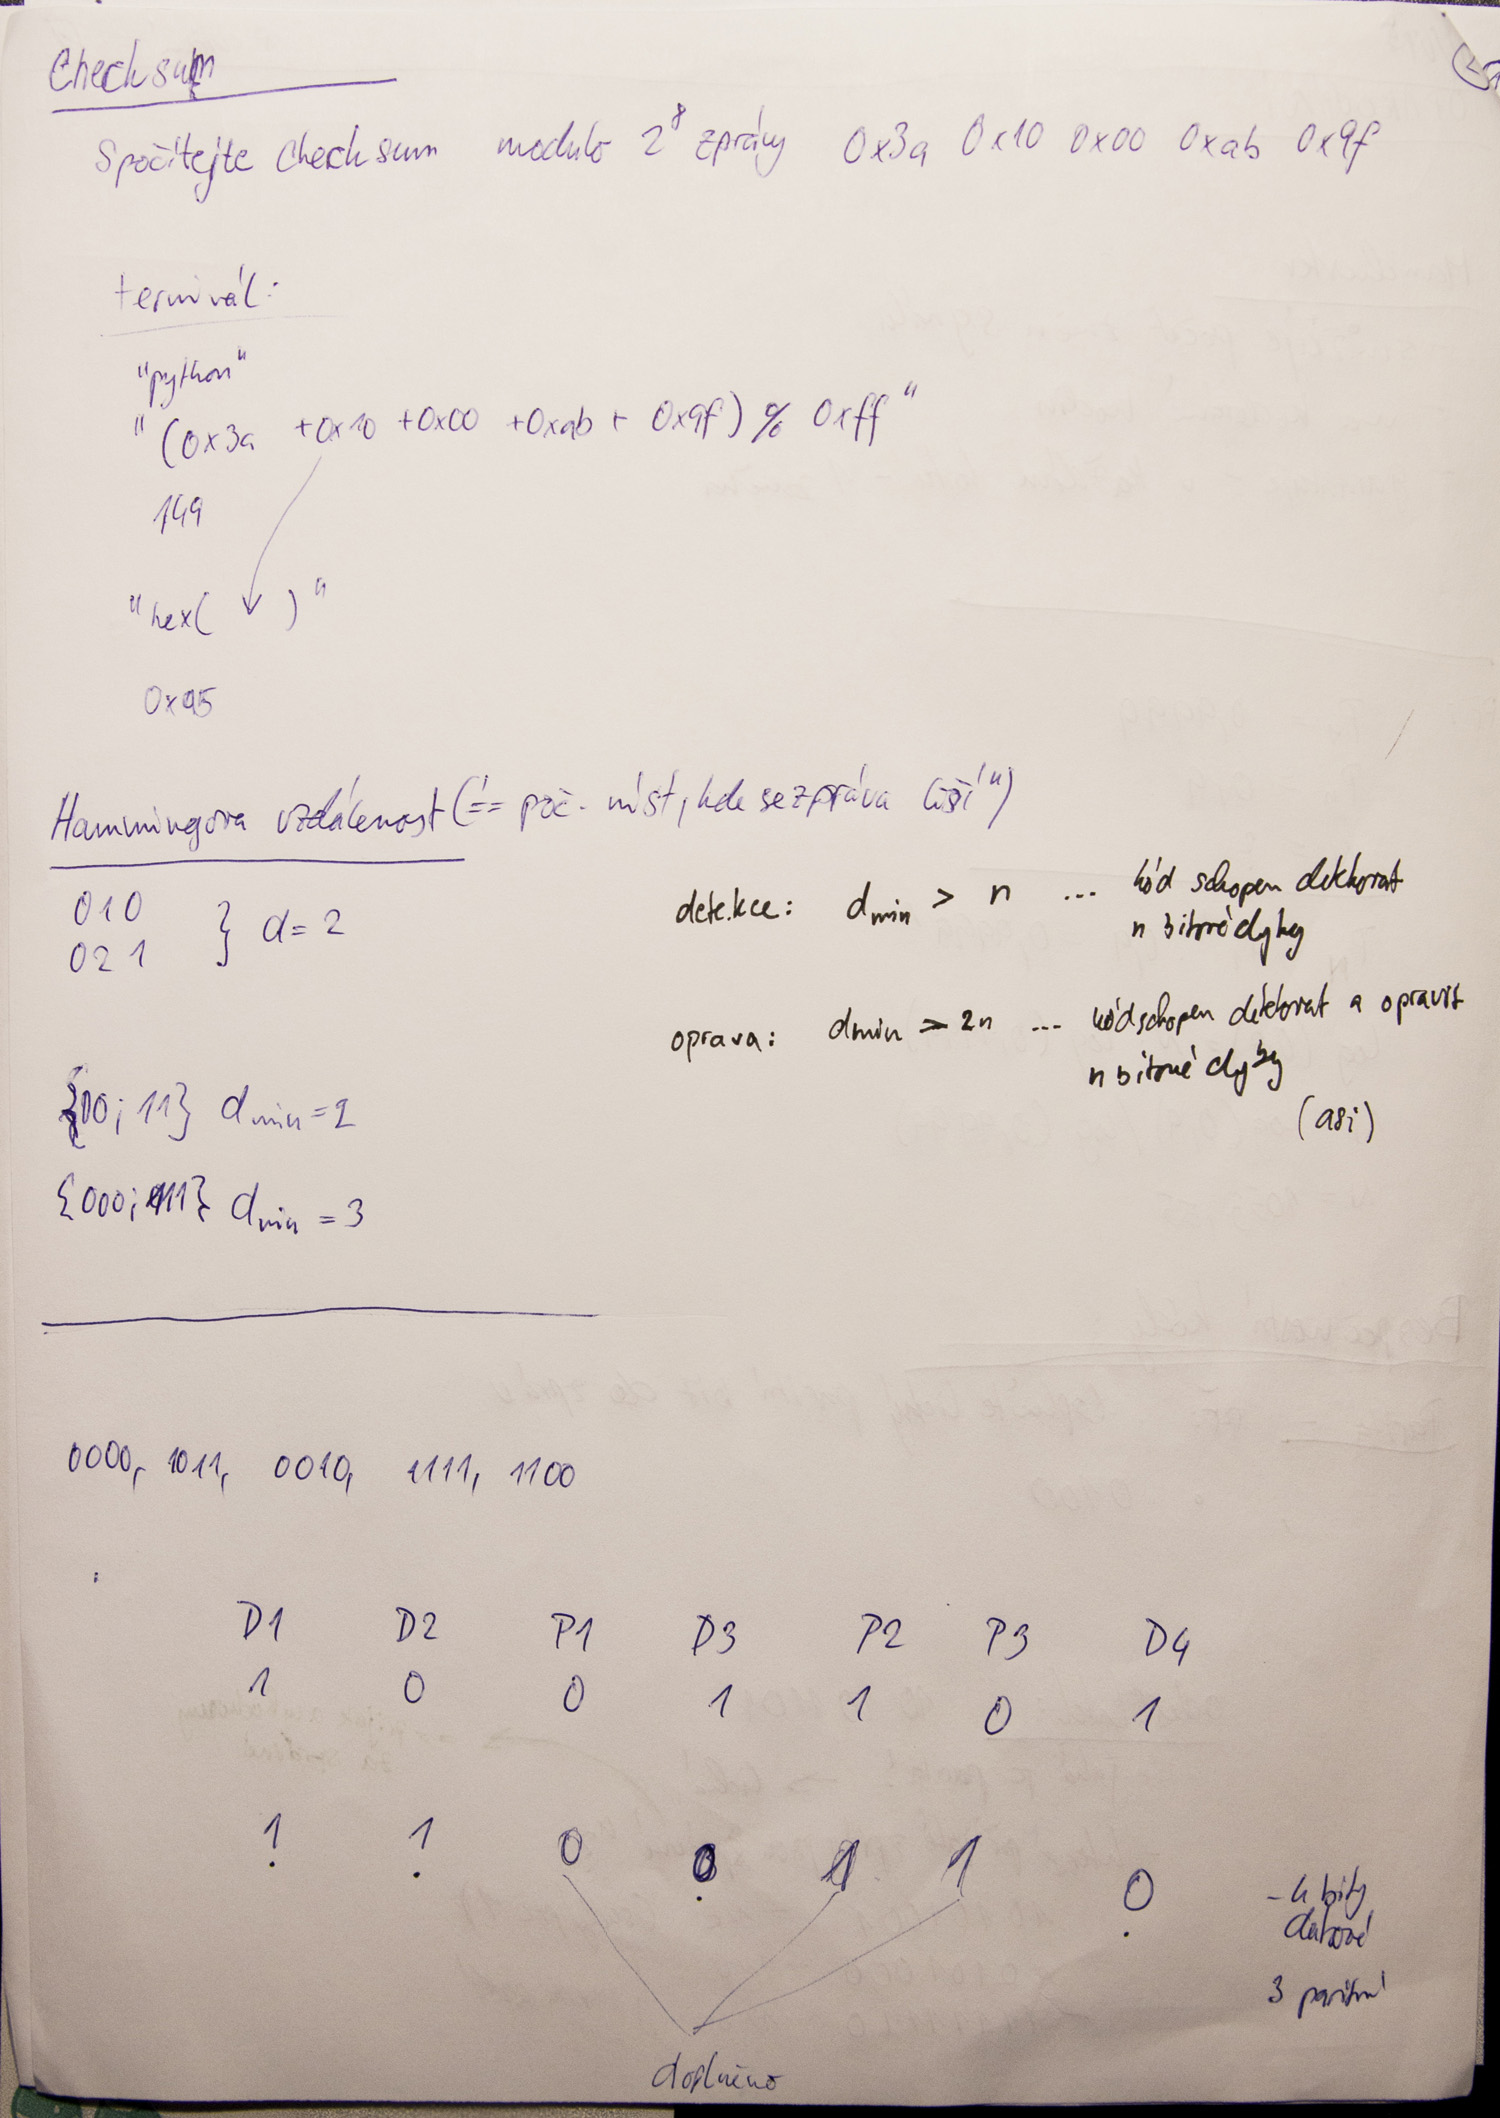 Checksum
Spočítejte checksum modulo 2^8 zprávy 0x3a 0x10 0x00 0xab 0x9f
terminál:
"python"
"(0x3a +0x10 +0x00 +0xab + 0x9f) % 0xff"
149
"hex( )"
0x95
Hammingova vzdálenost (== poč. míst, kde se zpráva liší")
010
021
} d=2
detekce: dmin > n ... kód schopen detekovat
n bitové chyby
oprava: dmin > 2n ... kód schopen detekovat a opravit
n bitové chyby
(asi)
{00; 11} dmin = 2
{000; 111} dmin = 3
0000, 1011, 0010, 1111, 1100
D1 D2 P1 D3 P2 P3 D4
1 0 0 1 1 0 1
1 1 0 0 1 1 0
- 4 bity
datové
3 paritní
doplněno